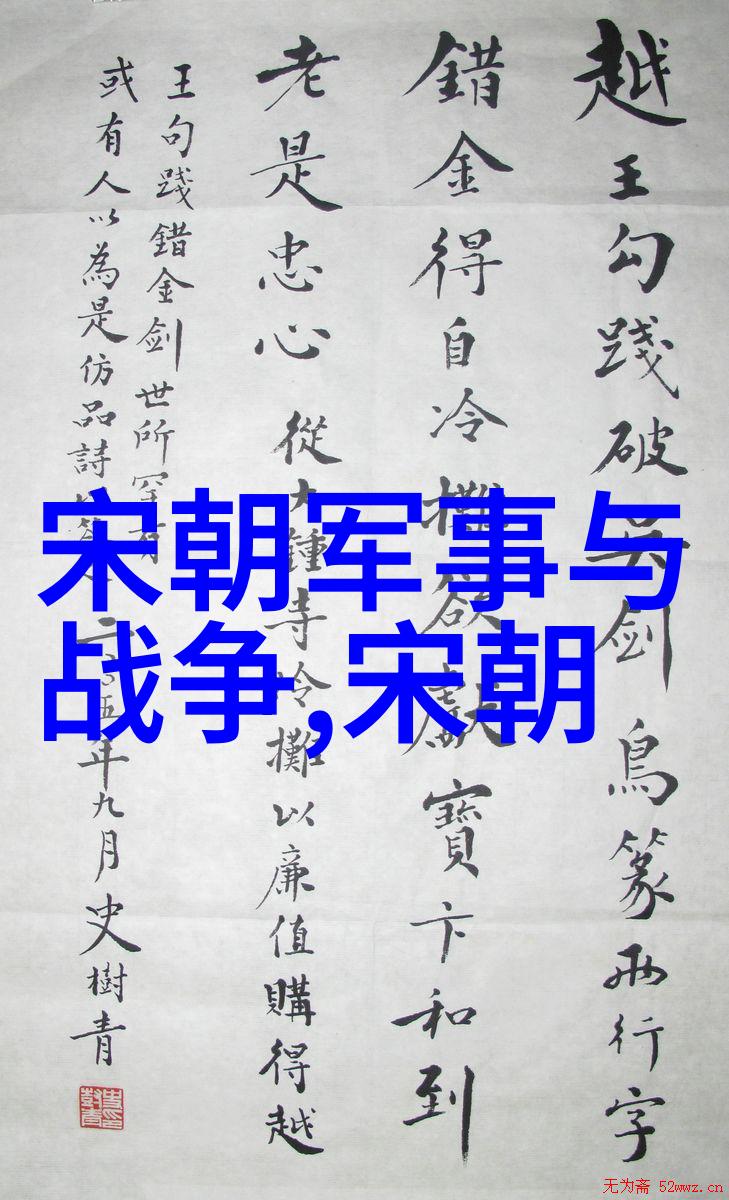 宋朝军事与
战争,宋朝
越王勾踐破吳剑鳥篆兩行字
錯金得自冷攤欲獻寶卞和到
老是忠心 從大鍾寺冷攤以廉值購得越
王句踐錯金剑世所罕
或有人以為是仿品詩 二〇〇五年九月史樹青
无为斋 52wwz.cn